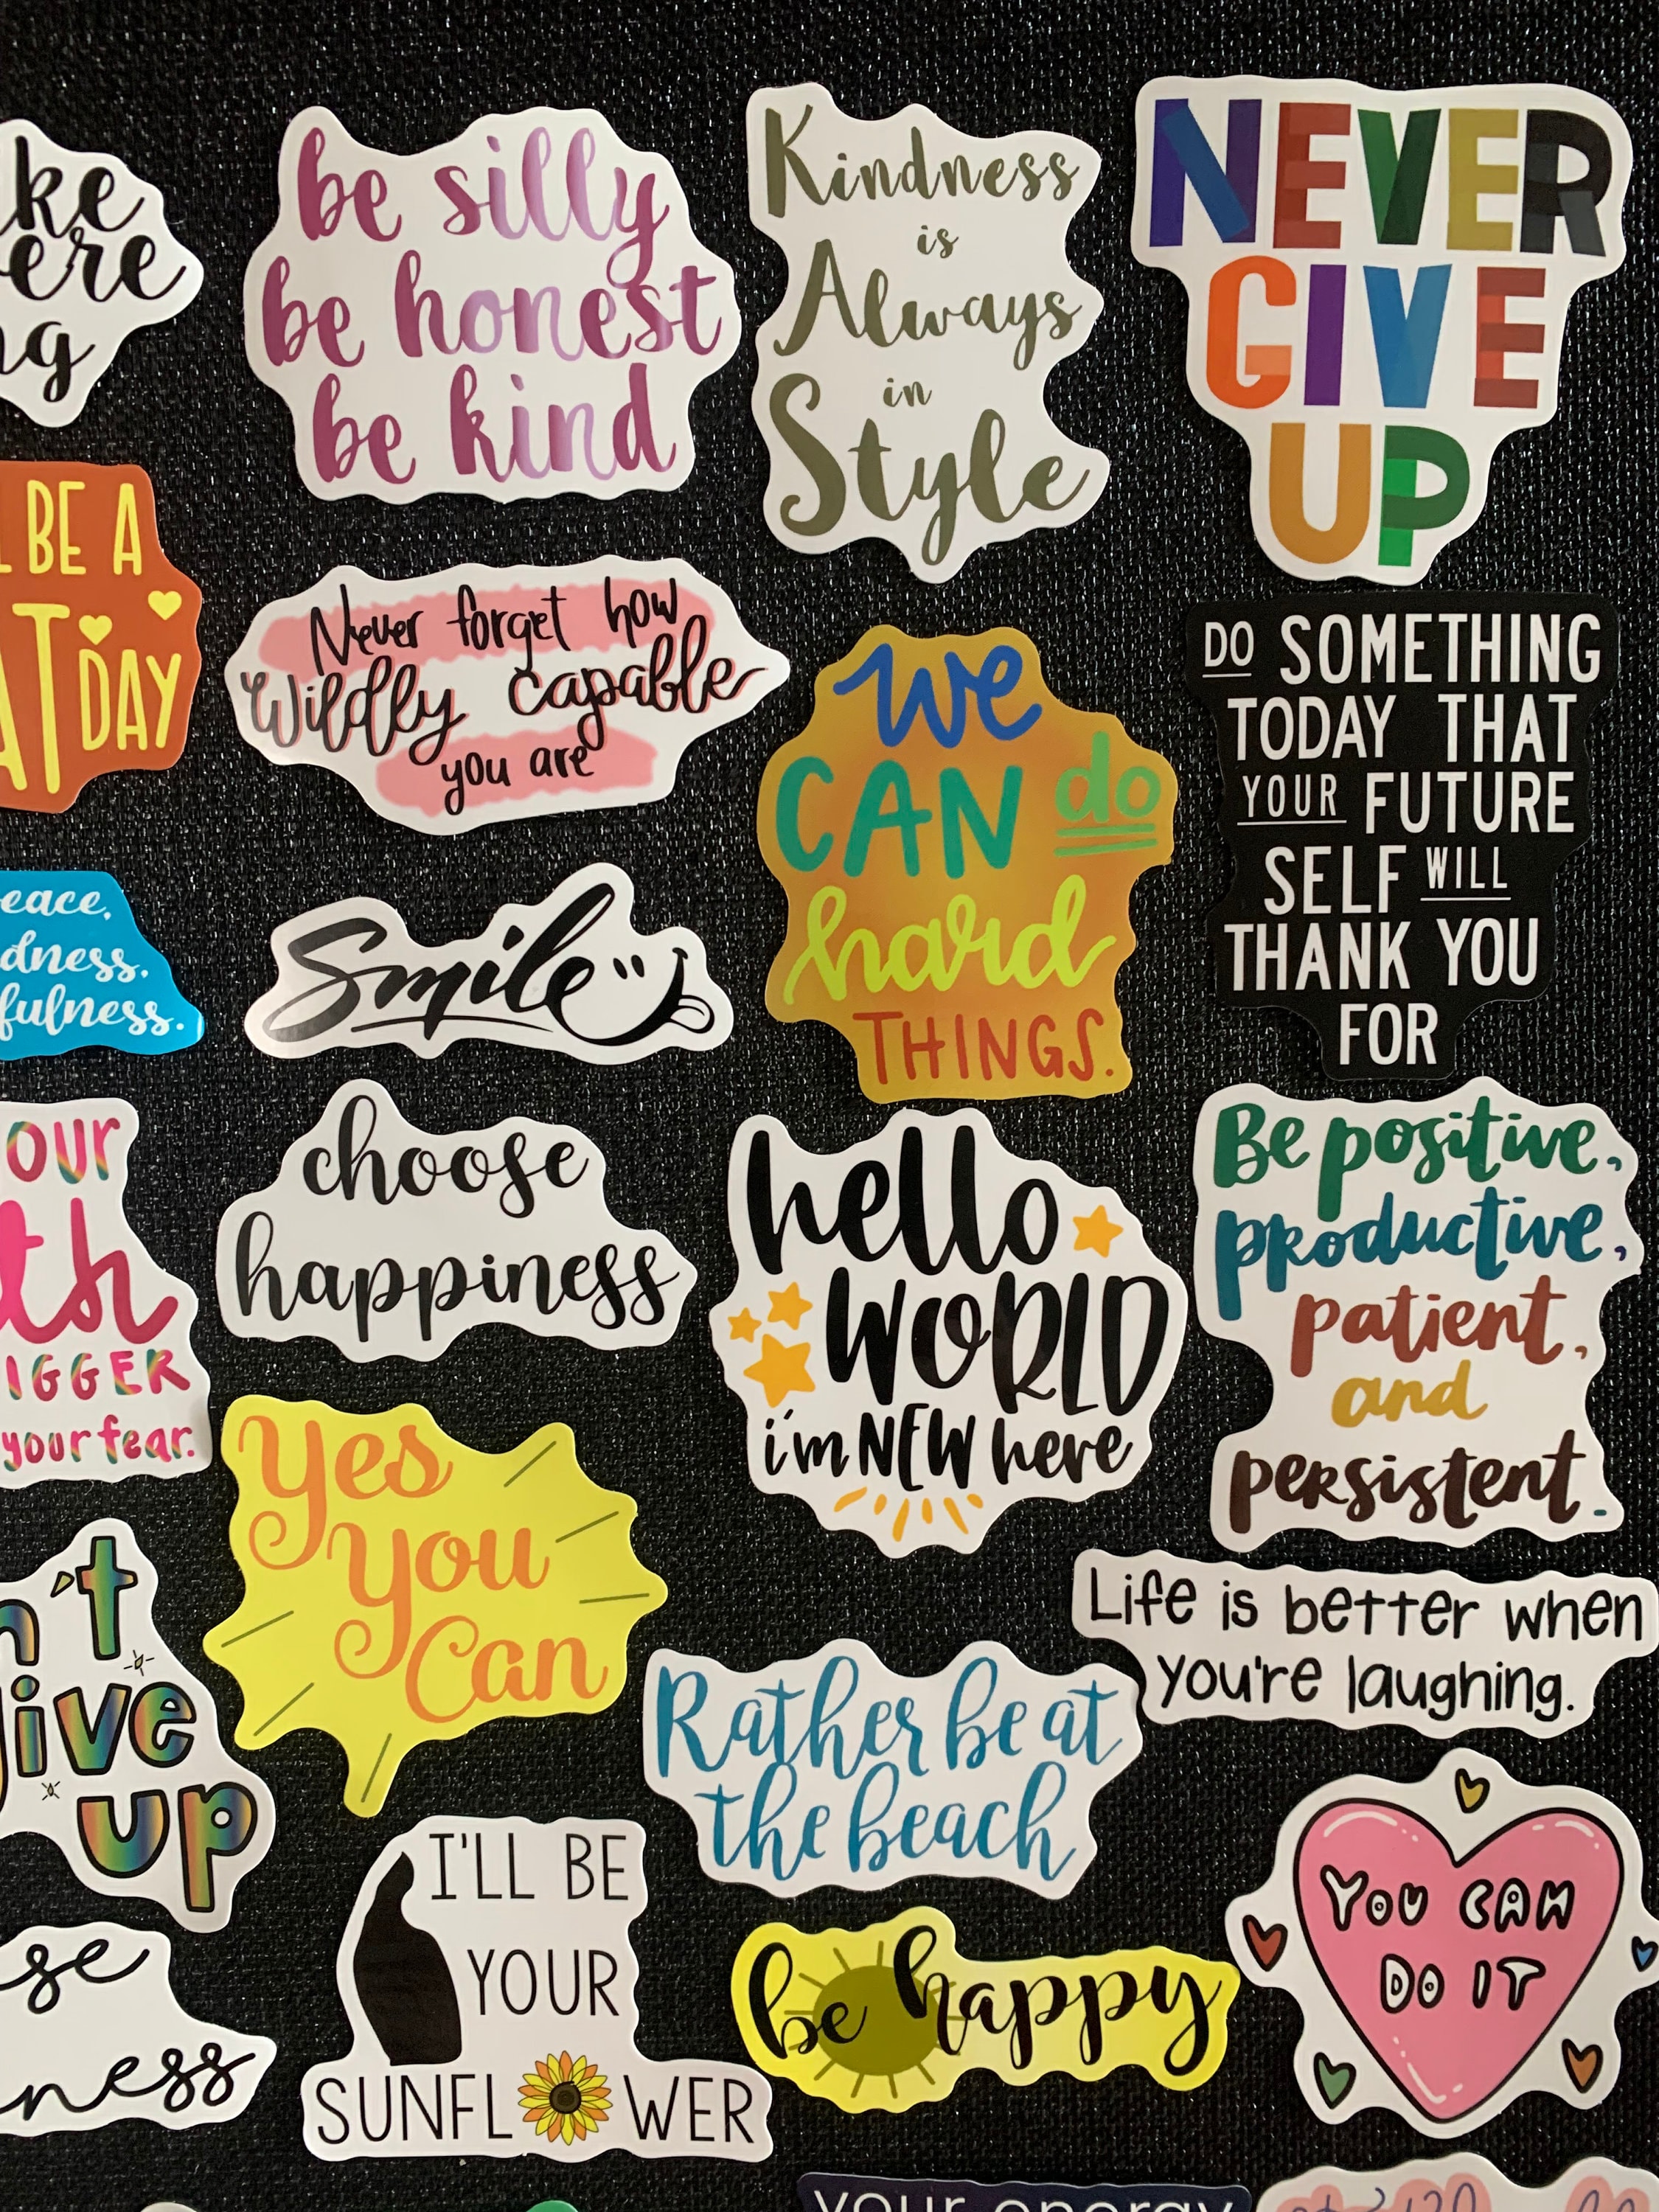 be silly
be honest
be kind
Kindness
is
Always
in
Style
NEVER
GIVE
UP
BE A
DAY
Never forget how
Wildly capable
you are
we
CAN do
hard
THINGS.
DO SOMETHING
TODAY THAT
YOUR FUTURE
SELF WILL
THANK YOU
FOR
Smile
choose
happiness
hello
WORLD
i'm NEW here
Be positive,
productive,
patient,
and
persistent.
IGGER
your fear.
Yes
You
Can
Life is better when
you're laughing.
Rather be at
the beach
up
I'LL BE
YOUR
SUNFL WER
be happy
YOU CAN
DO IT
your energy